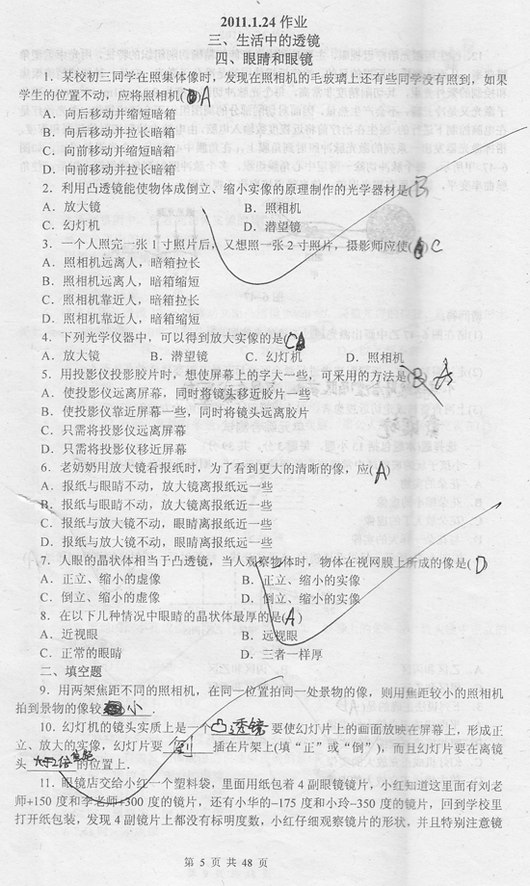 2011.1.24 作业
三、生活中的透镜
四、眼睛和眼镜
1．某校初三同学在照集体像时，发现在照相机的毛玻璃上还有些同学没有照到，如果
学生的位置不动，应将照相机( )A
A．向后移动并缩短暗箱
B．向后移动并拉长暗箱
C．向前移动并缩短暗箱
D．向前移动并拉长暗箱
2．利用凸透镜能使物体成倒立、缩小实像的原理制作的光学器材是(B
A．放大镜 B．照相机
C．幻灯机 D．潜望镜
3．一个人照完一张 1 寸照片后，又想照一张 2 寸照片，摄影师应使( )C
A．照相机远离人，暗箱拉长
B．照相机远离人，暗箱缩短
C．照相机靠近人，暗箱拉长
D．照相机靠近人，暗箱缩短
4．下列光学仪器中，可以得到放大实像的是(C
A．放大镜 B．潜望镜 C．幻灯机 D．照相机
5．用投影仪投影胶片时，想使屏幕上的字大一些，可采用的方法是(B A
A．使投影仪远离屏幕，同时将镜头移近胶片一些
B．使投影仪靠近屏幕一些，同时将镜头远离胶片
C．只需将投影仪远离屏幕
D．只需将投影仪移近屏幕
6．老奶奶用放大镜看报纸时，为了看到更大的清晰的像，应(A)
A．报纸与眼睛不动，放大镜离报纸远一些
B．报纸与眼睛不动，放大镜离报纸近一些
C．报纸与放大镜不动，眼睛离报纸近一些
D．报纸与放大镜不动，眼睛离报纸远一些
7．人眼的晶状体相当于凸透镜，当人观察物体时，物体在视网膜上所成的像是(D)
A．正立、缩小的虚像 B．正立、缩小的实像
C．倒立、缩小的虚像 D．倒立、缩小的实像
8．在以下几种情况中眼睛的晶状体最厚的是(A)
A．近视眼 B．远视眼
C．正常的眼睛 D．三者一样厚
二、填空题
9．用两架焦距不同的照相机，在同一位置拍同一处景物的像，则用焦距较小的照相机
拍到景物的像较 小 ．
10．幻灯机的镜头实质上是一个凸透镜 要使幻灯片上的画面放映在屏幕上，形成正
立、放大的实像，幻灯片要 倒 插在片架上(填“正”或“倒”)，而且幻灯片要在离镜
头 的位置上．
11．眼镜店交给小红一个塑料袋，里面用纸包着 4 副眼镜镜片，小红知道这里面有刘老
师+150 度和李老师+300 度的镜片，还有小华的–175 度和小玲–350 度的镜片，回到学校里
打开纸包装，发现 4 副镜片上都没有标明度数，小红仔细观察镜片的形状，并且特别注意镜
第 5 页 共 48 页